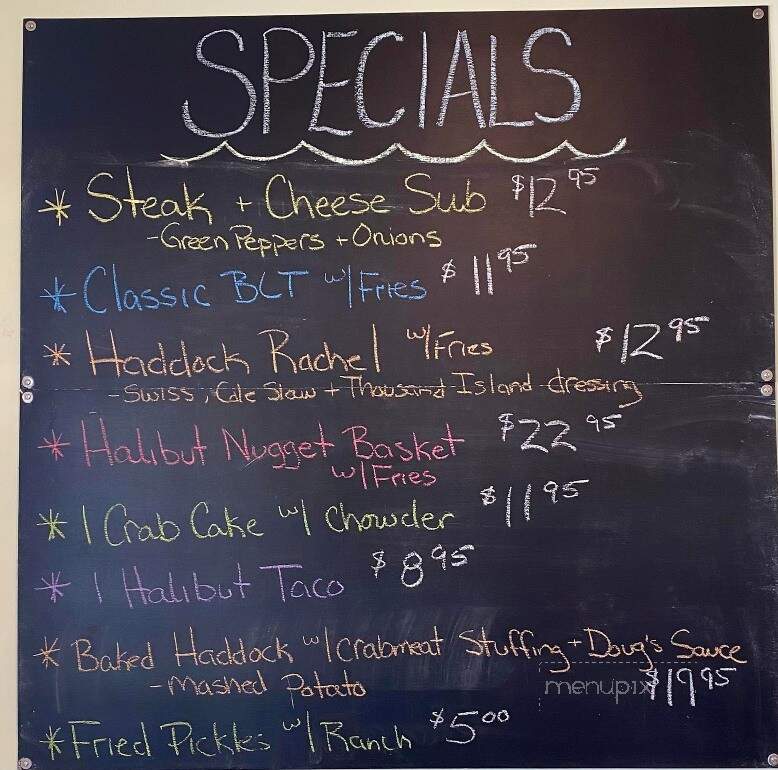 SPECIALS
* Steak + Cheese Sub $12 95
- Green Peppers + Onions
* Classic BLT w/ Fries $11 95
* Haddock Rachel w/ Fries $12 95
- Swiss, Cole Slaw + Thousand Island dressing
* Halibut Nugget Basket $22 95
w/ Fries
* 1 Crab Cake w/ Chowder $11 95
* 1 Halibut Taco $8 95
* Baked Haddock w/ Crabmeat Stuffing + Doug's Sauce
- Mashed Potato menupix $19 95
* Fried Pickles w/ Ranch $5 00